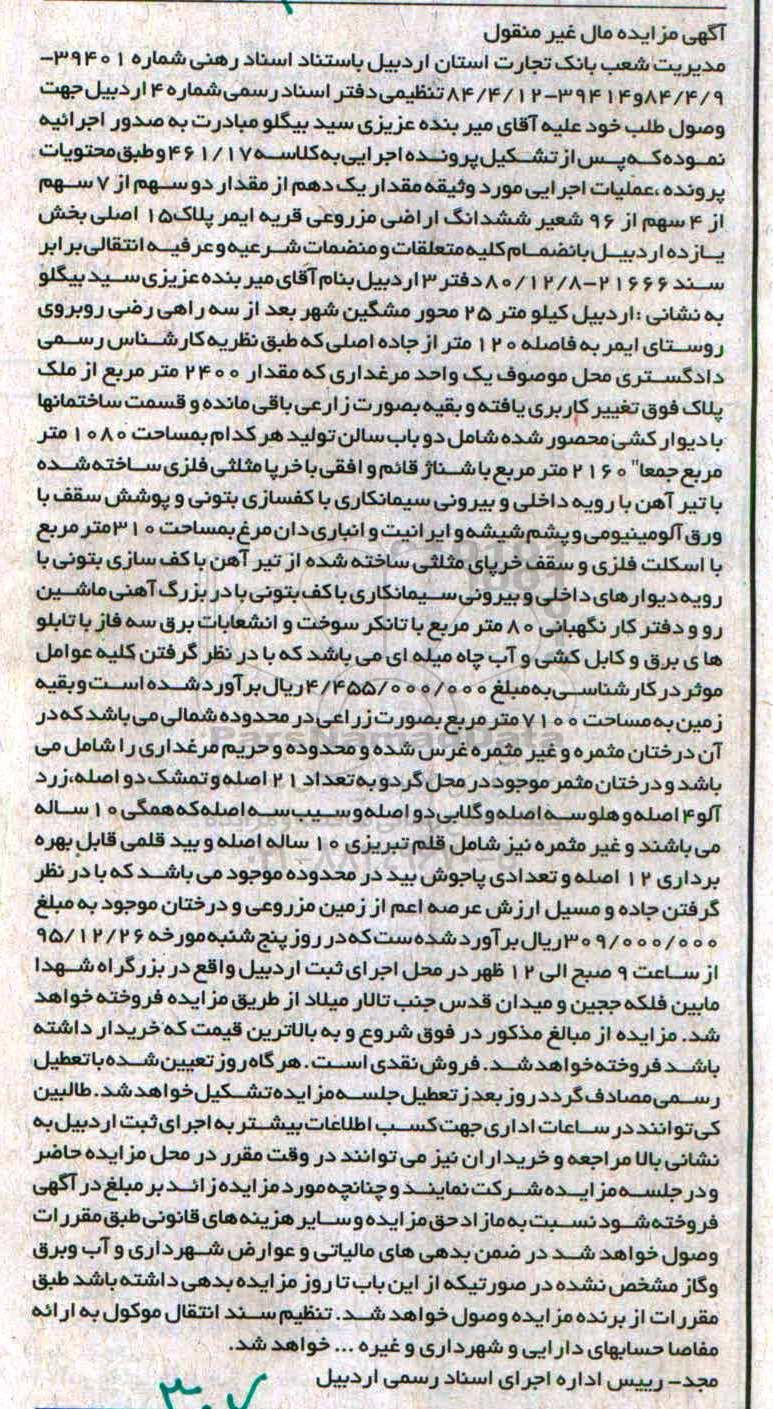 آگهی مزایده مال غیر منقول
مدیریت شعب بانک تجارت استان اردبیل باستناد اسناد رهنی شماره ۳۹۴۰۱-
۸۴/۴/۹و۳۹۴۱۴-۸۴/۴/۱۲ تنظیمی دفتر اسناد رسمی شماره ۴ اردبیل جهت
وصول طلب خود علیه آقای میر بنده عزیزی سید بیگلو مبادرت به صدور اجرائیه
نموده که پس از تشکیل پرونده اجرایی به کلاسه ۴۶۱/۱۷ و طبق محتویات
پرونده ،عملیات اجرایی مورد وثیقه مقدار یک دهم از مقدار دو سهم از ۷ سهم
از ۴ سهم از ۹۶ شعیر ششدانگ اراضی مزروعی قریه ایمر پلاک۱۵ اصلی بخش
یازده اردبیل بانضمام کلیه متعلقات و منضمات شرعیه و عرفیه انتقالی برابر
سند ۲۱۶۶۶-۸۰/۱۲/۸ دفتر ۳ اردبیل بنام آقای میر بنده عزیزی سید بیگلو
به نشانی :اردبیل کیلو متر ۲۵ محور مشگین شهر بعد از سه راهی رضی روبروی
روستای ایمر به فاصله ۱۲۰ متر از جاده اصلی که طبق نظریه کارشناس رسمی
دادگستری محل موصوف یک واحد مرغداری که مقدار ۲۴۰۰ متر مربع از ملک
پلاک فوق تغییر کاربری یافته و بقیه بصورت زارعی باقی مانده و قسمت ساختمانها
با دیوار کشی محصور شده شامل دو باب سالن تولید هر کدام بمساحت ۱۰۸۰ متر
مربع جمعا" ۲۱۶۰ متر مربع با شناژ قائم و افقی با خرپا مثلثی فلزی ساخته شده
با تیر آهن با رویه داخلی و بیرونی سیمانکاری با کفسازی بتونی و پوشش سقف با
ورق آلومینیومی و پشم شیشه و ایرانیت و انباری دان مرغ بمساحت ۳۱۰متر مربع
با اسکلت فلزی و سقف خرپای مثلثی ساخته شده از تیر آهن با کف سازی بتونی با
رویه دیوار های داخلی و بیرونی سیمانکاری با کف بتونی با در بزرگ آهنی ماشین
رو و دفتر کار نگهبانی ۸۰ متر مربع با تانکر سوخت و انشعابات برق سه فاز با تابلو
ها ی برق و کابل کشی و آب چاه میله ای می باشد که با در نظر گرفتن کلیه عوامل
موثر در کارشناسی به مبلغ ۴/۴۵۵/۰۰۰/۰۰۰ریال برآورد شده است و بقیه
زمین به مساحت ۷۱۰۰متر مربع بصورت زراعی در محدوده شمالی می باشد که در
آن درختان مثمره و غیر مثمره غرس شده و محدوده و حریم مرغداری را شامل می
باشد و درختان مثمر موجود در محل گردو به تعداد ۲۱ اصله و تمشک دو اصله،زرد
آلو ۴ اصله و هلو سه اصله و گلابی دو اصله و سیب سه اصله که همگی ۱۰ ساله
می باشند و غیر مثمره نیز شامل قلم تبریزی ۱۰ ساله اصله و بید قلمی قابل بهره
برداری ۱۲ اصله و تعدادی پاجوش بید در محدوده موجود می باشد که با در نظر
گرفتن جاده و مسیل ارزش عرصه اعم از زمین مزروعی و درختان موجود به مبلغ
۳۰۹/۰۰۰/۰۰۰ریال برآورد شده ست که در روز پنج شنبه مورخه ۹۵/۱۲/۲۶
از ساعت ۹ صبح الی ۱۲ ظهر در محل اجرای ثبت اردبیل واقع در بزرگراه شهدا
مابین فلکه ججین و میدان قدس جنب تالار میلاد از طریق مزایده فروخته خواهد
شد. مزایده از مبالغ مذکور در فوق شروع و به بالاترین قیمت که خریدار داشته
باشد فروخته خواهد شد. فروش نقدی است. هرگاه روز تعیین شده با تعطیل
رسمی مصادف گردد روز بعد ز تعطیل جلسه مزایده تشکیل خواهد شد. طالبین
کی توانند در ساعات اداری جهت کسب اطلاعات بیشتر به اجرای ثبت اردبیل به
نشانی بالا مراجعه و خریداران نیز می توانند در وقت مقرر در محل مزایده حاضر
و در جلسه مزایده شرکت نمایند و چنانچه مورد مزایده زائد بر مبلغ در آگهی
فروخته شود نسبت به مازاد حق مزایده و سایر هزینه های قانونی طبق مقررات
وصول خواهد شد در ضمن بدهی های مالیاتی و عوارض شهرداری و آب وبرق
وگاز مشخص نشده در صورتیکه از این باب تا روز مزایده بدهی داشته باشد طبق
مقررات از برنده مزایده وصول خواهد شد. تنظیم سند انتقال موکول به ارائه
مفاصا حسابهای دارایی و شهرداری و غیره ... خواهد شد.
مجد- رییس اداره اجرای اسناد رسمی اردبیل